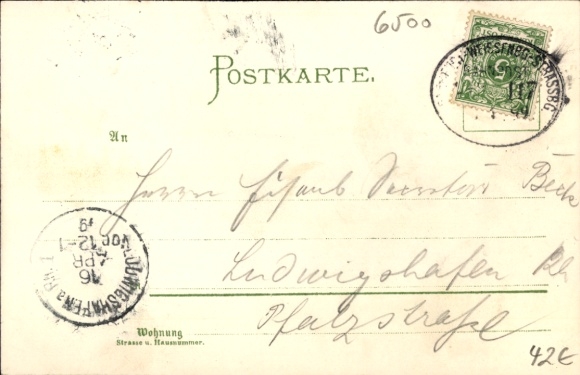 6500
POSTKARTE.
WEISSENBG-STRASSBG
117
5
An
Herrn Eisenb Secretär Beck
Ludwigshafen Rh
Pfalzstraße
LUDWIGSHAFEN a. Rh. 1
16
APR
Vor 12-1
Wohnung
Strasse u. Hausnummer.
42€